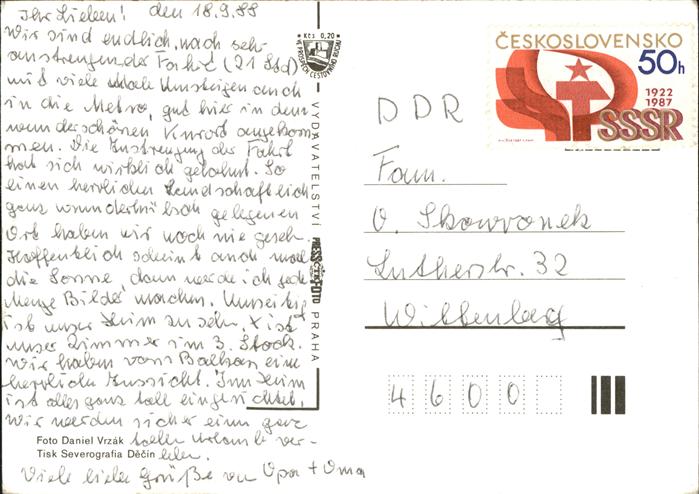 Ihr Lieben! den 18.9.88
Wir sind endlich, nach sehr
anstrengender Fahrt (21 Std)
mit viele Male Umsteigen auch
in die Metro, gut hier in dem
wunderschönen Kurort angekom
men. Die Anstrengung der Fahrt
hat sich wirklich gelohnt. So
einen herrlichen landschaftlich
ganz wunderhübsch gelegenen
Ort haben wir noch nie geseh.
Hoffentlich scheint auch mal
die Sonne, dann werde ich jede
Menge Bilder machen. Umseitig
ist unser Heim zu sehn, x ist
unser Zimmer im 3. Stock.
Wir haben vom Balkon eine
herrliche Aussicht. Im Heim
ist alles ganz toll eingerichtet.
Wir werden sicher einen ganz
tollen Urlaub ver-
leben.
Viele liebe Grüße von Opa + Oma
Foto Daniel Vrzák
Tisk Severografia Děčín
Kčs 0,20
VE PROSPĚCH CESTOVNÍHO RUCHU
VYDAVATELSTVÍ
PRESSFOTO
PRAHA
ČESKOSLOVENSKO
50h
1922
1987
SSSR
DDR
Fam.
O. Skowronek
Lutherstr. 32
Wittenberg
4600